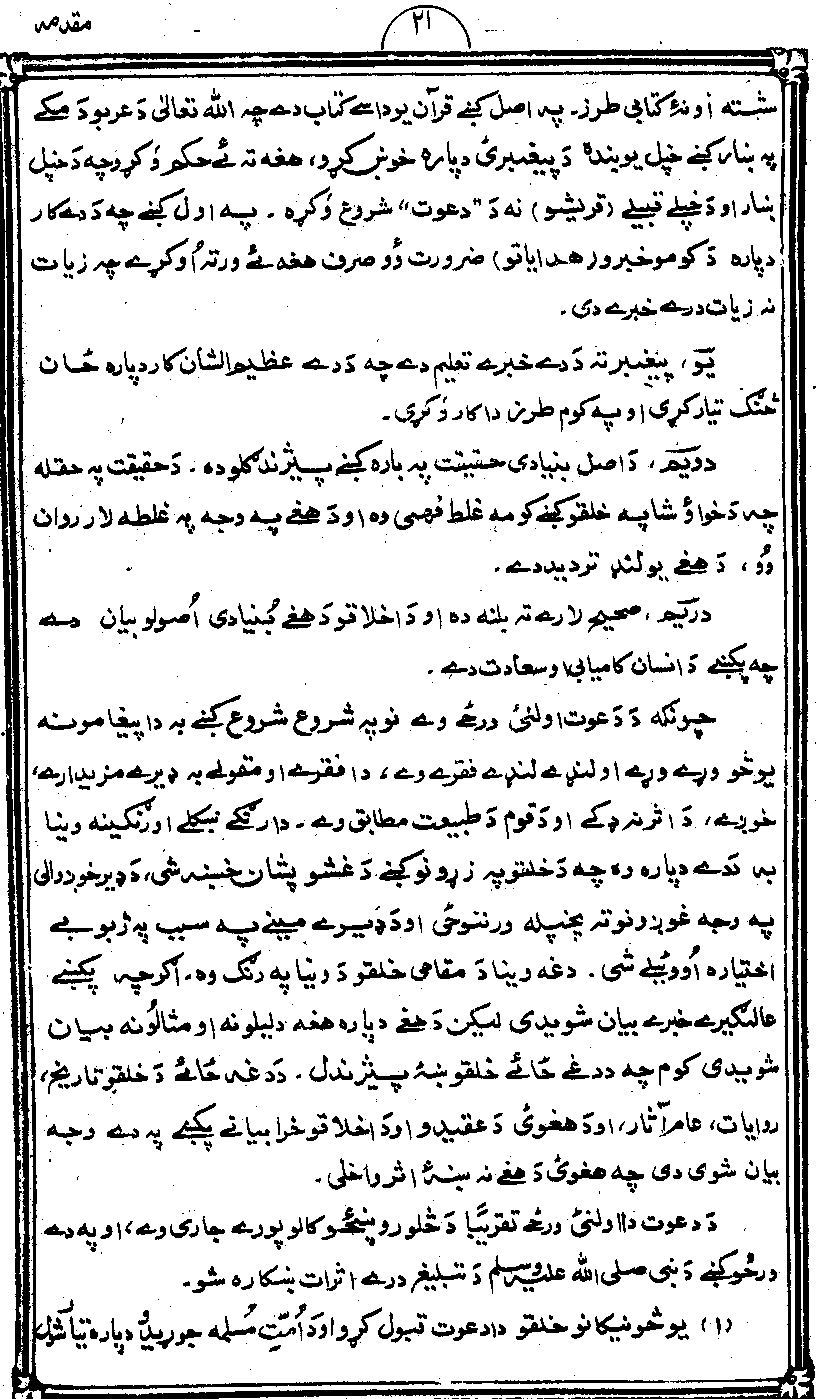 مقدمه
۲۱
شسته اُو نۀ کتابی طرز۔ په اصل کښے قرآن یو داسے کتاب دے چه الله تعالیٰ دَ عربو دَ مکے
په ښار کښے خپل یو بنده دَ پیغمبرئ دپاره خوښ کړو، هغه ته ئے حکم وُکړو چه دَ خپل
ښار او دَ خپلے قبیلے (قریشو) نه دَ "دعوت" شروع وُکړه ۔ په اول کښے چه دَ دے کار
دپاره دَ کومو خبرو (هدایاتو) ضرورت وُو صرف هغه ئے ورته اُوکړے چه زیات
نه زیات درے خبرے دی۔
یَو، پیغمبر ته دَ دے خبرے تعلیم دے چه دَ دے عظیم الشان کار دپاره ځان
څنګ تیار کړی او په کوم طرز دا کار وُکړی۔
دویَم، دَ اصل بنیادی حقیقت په باره کښے پیژندګلو ده ۔ دَ حقیقت په حقله
چه دَ خوا ؤ شا په خلقو کښے کومه غلط فهمی وه او دَ هغے په وجه په غلطه لار روان
وُو، دَ هغے یو لنډ تردید دے ۔
دریَم، صحیح لارے ته بلنه ده او دَ اخلاقو دَ هغے بُنیادی اُصولو بیان دے
چه پکښے دَ انسان کامیابی او سعادت دے ۔
چونکه دَ دعوت اولنئ ورځے وے نو په شروع شروع کښے به دا پیغامونه
یو څو ورے ورے او لنډے لنډے فقرے وے، دا فقرے او مقولے به ډیرے مزیدارے،
خوږے، دَ اثر نه ډکے او دَ قوم دَ طبیعت مطابق وے ۔ دا رنګے ښکلے او رنګینه وینا
به دَ دے دپاره وه چه دَ خلقو په زړونو کښے دَ غشو پشان خښه شی، دَ ډیر خودوالی
په وجه غوږونو ته پخپله ورننوځی او دَ ډیرے مینے په سبب په ژبو بے
اختیاره اُووئیلے شی۔ دغه وینا دَ مقامی خلقو دَ وینا په رنګ وه۔ اګرچه پکښے
عالمګیرے خبرے بیان شویدی لیکن دَ هغے دپاره هغه دلیلونه او مثالونه بیان
شویدی کوم چه د دغے ځائے خلقو ښۀ پیژندل ۔ دَ دغه ځائے دَ خلقو تاریخ،
روایات، عام آثار، او دَ هغوئ دَ عقیدو او دَ اخلاقو خرابیانے پکښے په دے وجه
بیان شوی دی چه هغوئ دَ هغے نه ښۀ اثر واخلی۔
دَ دعوت دا اولنئ ورځے تقریبًا دَ څلورو پنځو کالو پورے جاری وے، او په دے
ورځو کښے دَ نبی صلی الله علیه وسلم دَ تبلیغ درے اثرات ښکاره شو۔
(۱) یو څو نیکانو خلقو دا دعوت قبول کړو او دَ اُمّتِ مُسلمه جوړیدو دپاره تیار شول